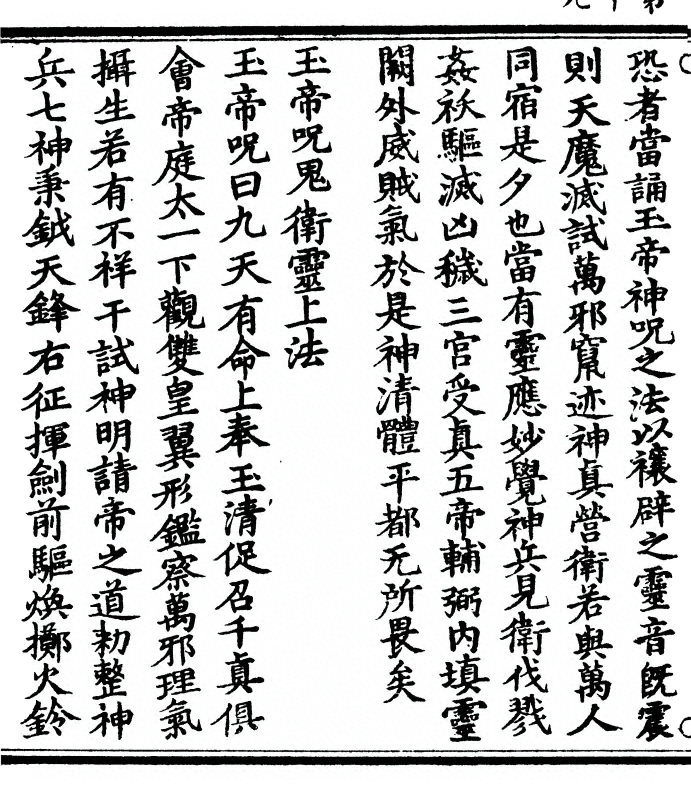 恐者當誦玉帝神呪之法以禳辟之靈音既震
則天魔滅試萬邪竄迹神真營衛若與萬人
同宿是夕也當有靈應妙覺神兵見衛伐戮
姦祅驅滅凶穢三官受真五帝輔弼內填靈
闕外威賊氣於是神清體平都无所畏矣
玉帝呪鬼衛靈上法
玉帝呪曰九天有命上奉玉清促召千真俱
會帝庭太一下觀雙皇翼形鑑察萬邪理氣
攝生若有不祥干試神明請帝之道勑整神
兵七神秉鉞天鋒右征揮劍前驅煥擲火鈴